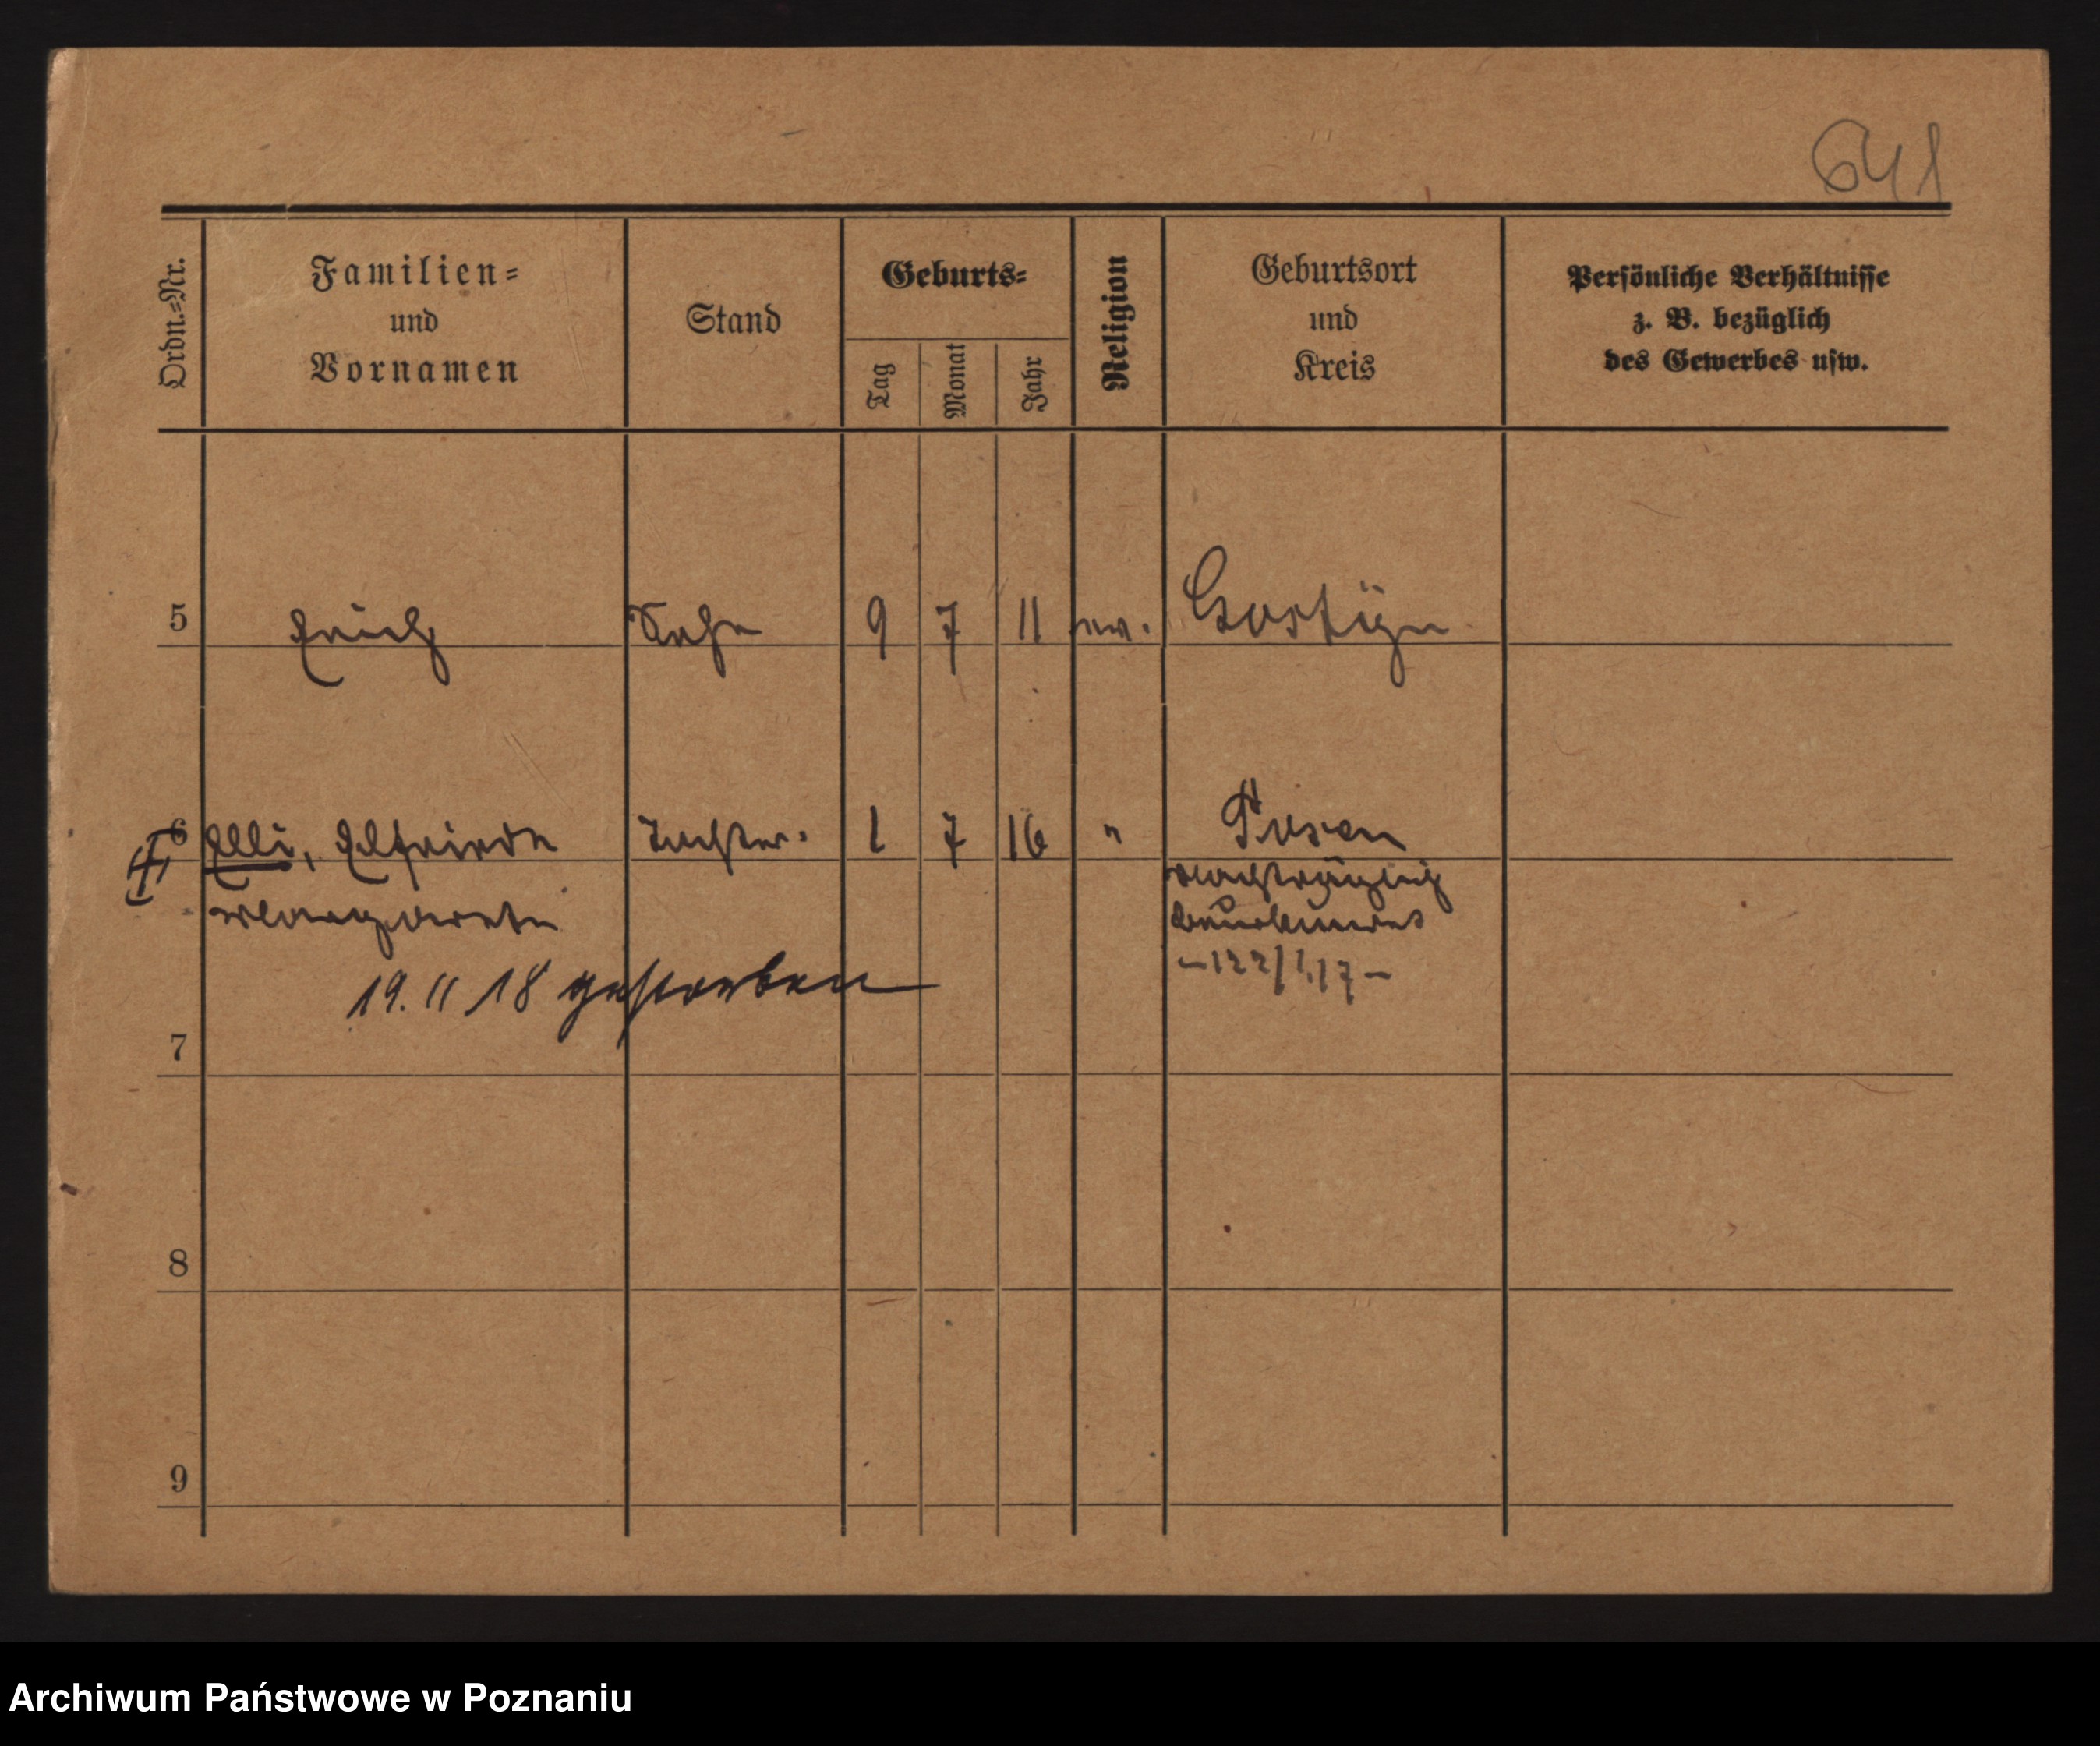 641
Ordn.=Nr.
Familien=
und
Vornamen
Stand
Geburts=
Tag
Monat
Jahr
Religion
Geburtsort
und
Kreis
Persönliche Verhältnisse
z. B. bezüglich
des Gewerbes usw.
5 Erich Sohn 9 7 11 ev. Gostÿn
6 Elli, Elfriede Tochter. 1 7 16 " Posen
Margarete
nachträglich
beurkundet
19. 11 18 gestorben
7
8
9
Archiwum Państwowe w Poznaniu